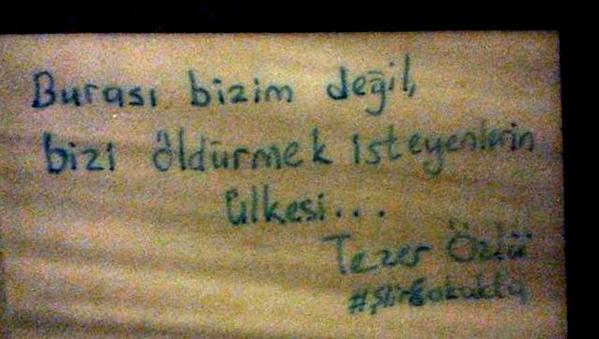 Burası bizim değil,
bizi öldürmek isteyenlerin
ülkesi...
Tezer Özlü
#şiirSokakta